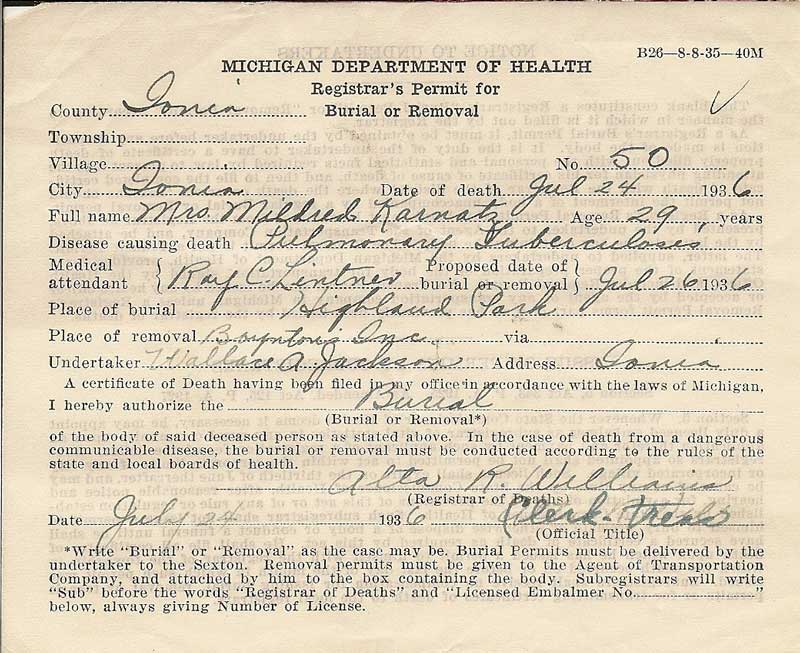 B26—8-8-35—40M
MICHIGAN DEPARTMENT OF HEALTH
Registrar's Permit for
County Ionia Burial or Removal
Township
Village No. 50
City Ionia Date of death Jul 24 1936
Full name Mrs. Mildred Karnatz Age 29 years
Disease causing death Pulmonary Tuberculosis
Medical attendant Ray C. Lentner Proposed date of burial or removal Jul 26 1936
Place of burial Highland Park
Place of removal Boyntons Inc. via
Undertaker Wallace A. Jackson Address Ionia
A certificate of Death having been filed in my office in accordance with the laws of Michigan,
I hereby authorize the Burial
(Burial or Removal*)
of the body of said deceased person as stated above. In the case of death from a dangerous
communicable disease, the burial or removal must be conducted according to the rules of the
state and local boards of health.
Alta R. Williams
(Registrar of Deaths)
Date July 24 1936 Clerk-Treas
(Official Title)
*Write "Burial" or "Removal" as the case may be. Burial Permits must be delivered by the
undertaker to the Sexton. Removal permits must be given to the Agent of Transportation
Company, and attached by him to the box containing the body. Subregistrars will write
"Sub" before the words "Registrar of Deaths" and "Licensed Embalmer No. "
below, always giving Number of License.